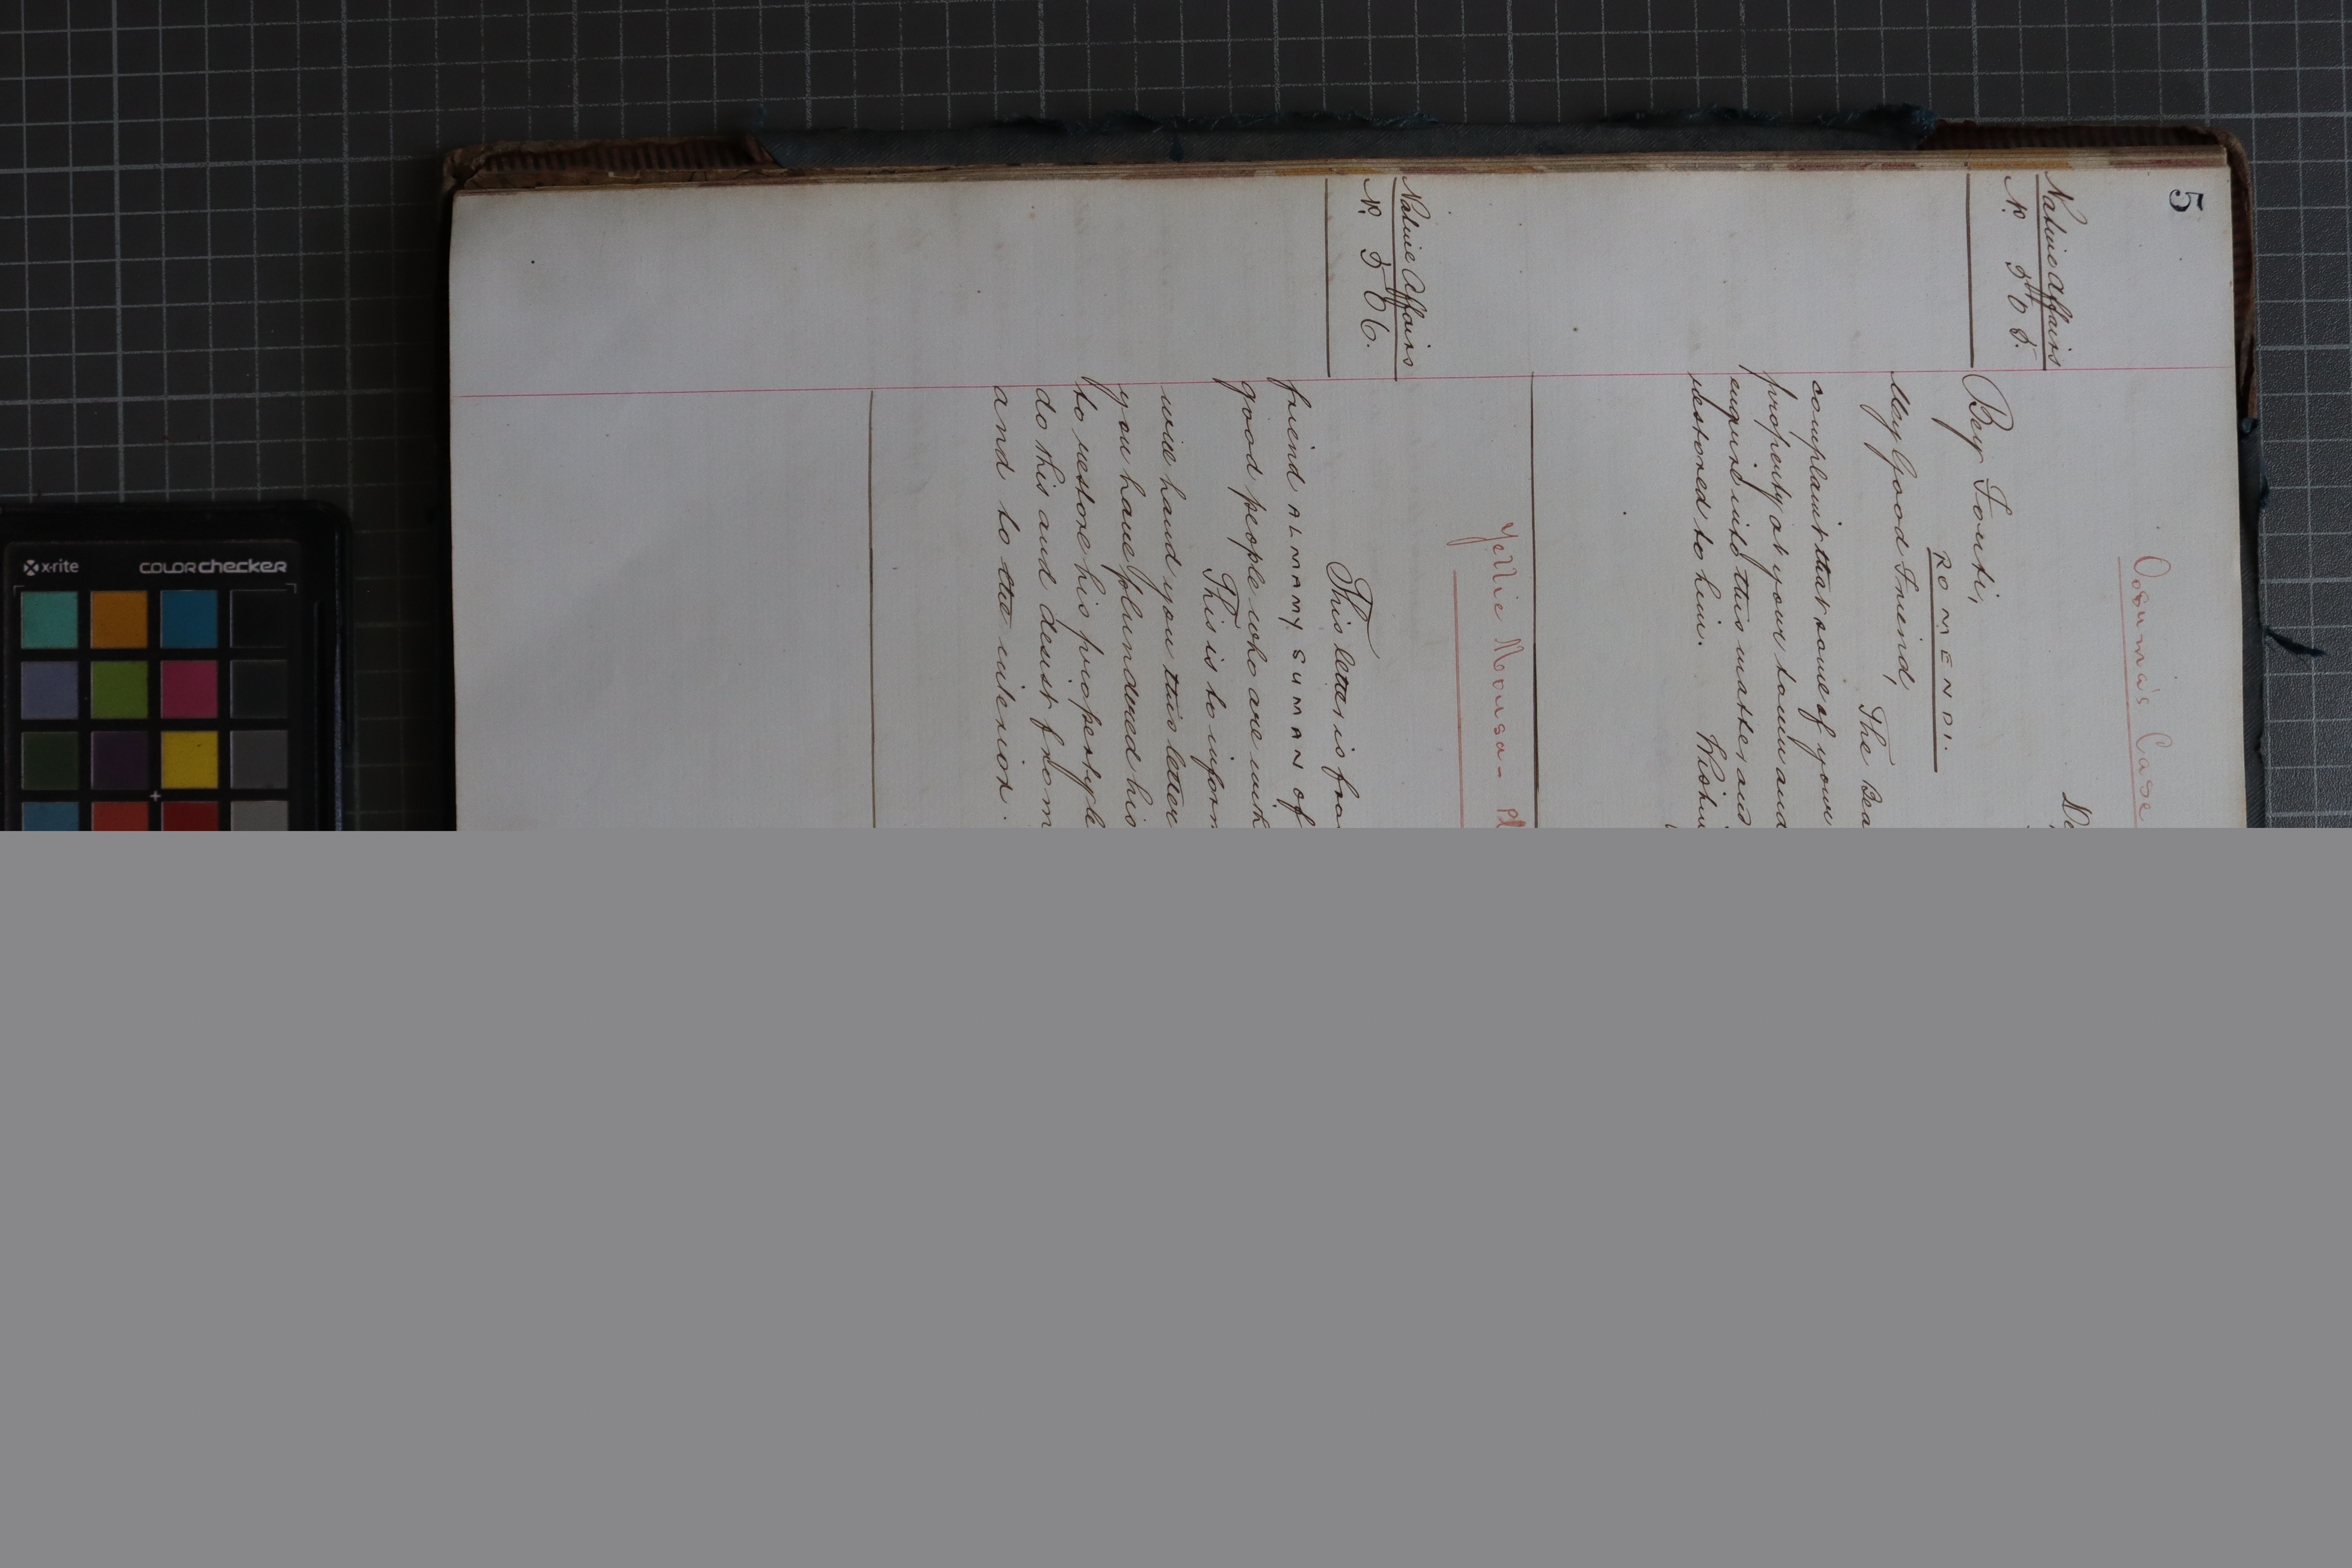 5
Oosuma's Case
Native Affairs
No. 505.
Bey Fouti,
ROMENDI.
My Good Friend,
The Bea
complaint that some of your
property at your town and
enquire into this matter and
restored to him.
Yellie Mousa - Pl
Native Affairs
No. 506.
This letter is fro
friend ALMAMY SUMAN of
good people who are with
will hand you this letter
This is to inform
you have plundered his
to restore his property
do this and desist from
and to the interior.
x-rite
colorchecker